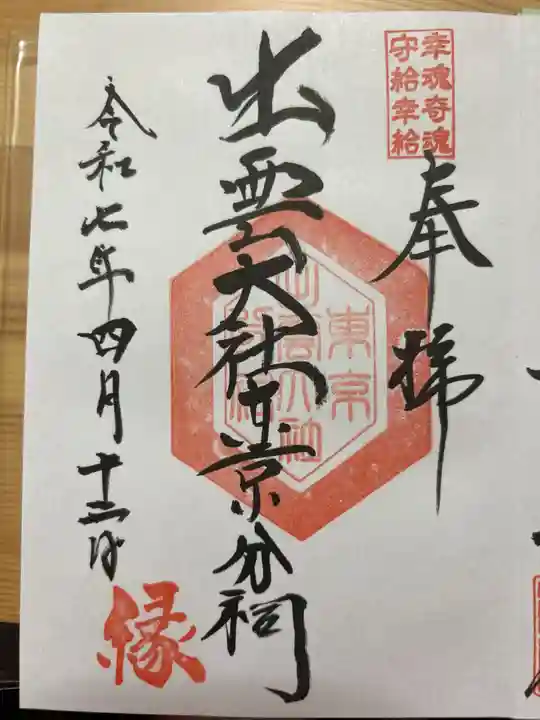 幸魂奇魂
守給幸給
奉拝
出雲大社東京分祠
東京
出雲大社
令和七年四月十二日
縁